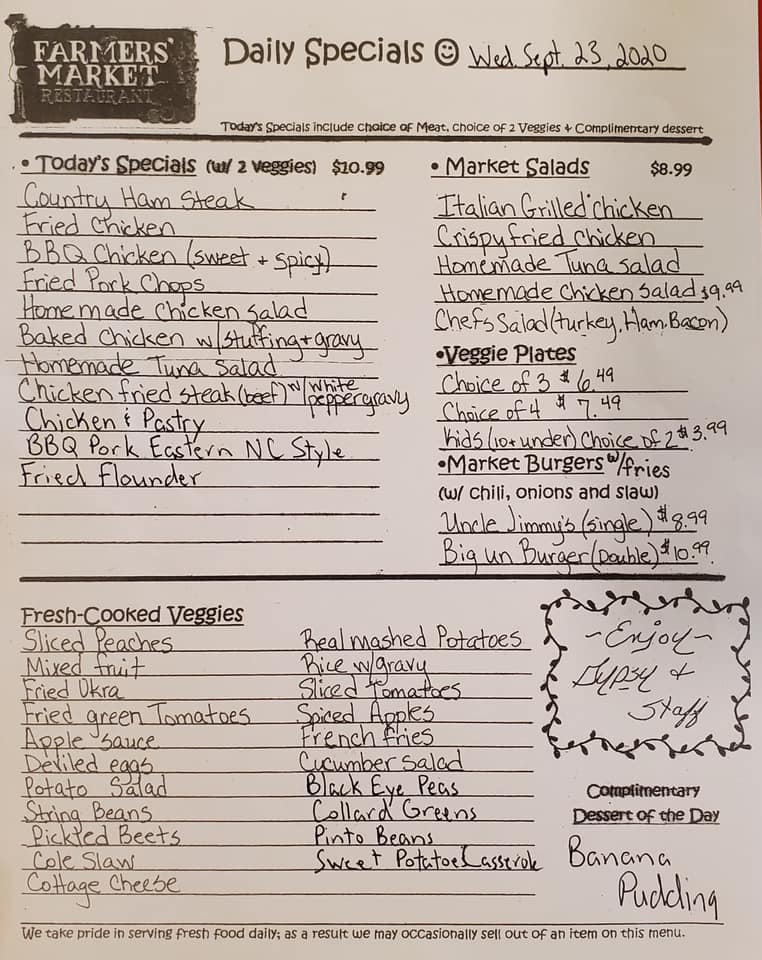 FARMERS'
MARKET
RESTAURANT
Daily Specials Wed. Sept. 23, 2020
Today's Specials include choice of Meat, choice of 2 Veggies + Complimentary dessert
• Today's Specials (w/ 2 veggies) $10.99
Country Ham Steak
Fried Chicken
BBQ Chicken (sweet + spicy)
Fried Pork Chops
Homemade Chicken Salad
Baked Chicken w/stuffing+gravy
Homemade Tuna Salad
Chicken fried steak (beef) w/ white peppergravy
Chicken & Pastry
BBQ Pork Eastern NC Style
Fried Flounder
• Market Salads $8.99
Italian Grilled chicken
Crispy fried chicken
Homemade Tuna salad
Homemade Chicken Salad $9.99
Chefs Salad (turkey, Ham, Bacon)
•Veggie Plates
Choice of 3 $6.49
Choice of 4 $7.49
Kids (10+under) Choice of 2 $3.99
•Market Burgers w/fries
(w/ chili, onions and slaw)
Uncle Jimmy's (single) $8.99
Big un Burger (Double) $10.99
Fresh-Cooked Veggies
Sliced Peaches
Mixed fruit
Fried Okra
Fried green Tomatoes
Apple sauce
Deviled eggs
Potato Salad
String Beans
Pickled Beets
Cole Slaw
Cottage Cheese
Real mashed Potatoes
Rice w/gravy
Sliced Tomatoes
Spiced Apples
French fries
Cucumber salad
Black Eye Peas
Collard Greens
Pinto Beans
Sweet Potatoe Casserole
~Enjoy~
Gypsy +
Staff
Complimentary
Dessert of the Day
Banana
Pudding
We take pride in serving fresh food daily; as a result we may occasionally sell out of an item on this menu.